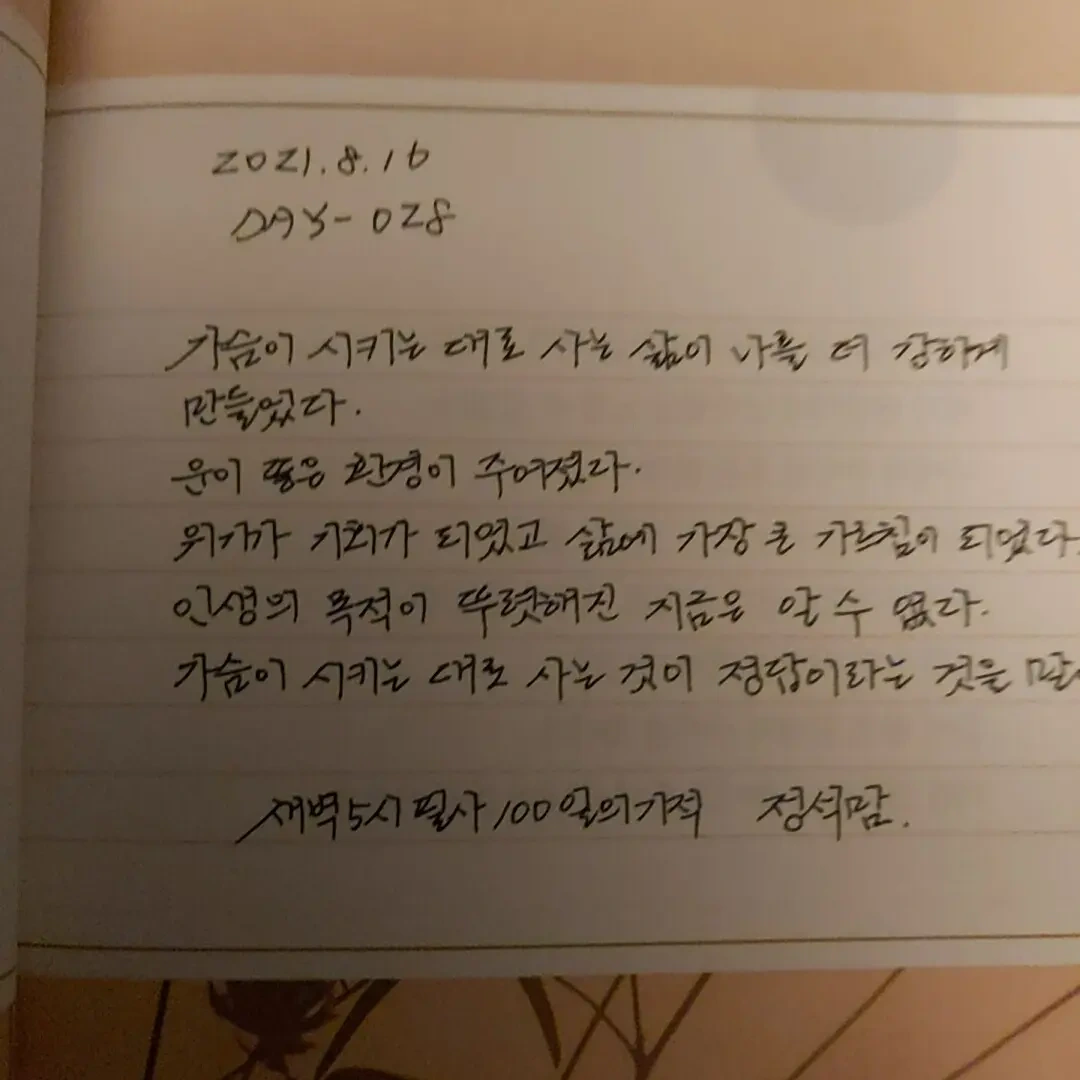 2021.8.16
DAY-028
가슴이 시키는 대로 사는 삶이 나를 더 강하게
만들었다.
운이 좋은 환경이 주어졌다.
위기가 기회가 되었고 삶에 가장 큰 가르침이 되었다.
인생의 목적이 뚜렷해진 지금은 알 수 있다.
가슴이 시키는 대로 사는 것이 정답이라는 것을
새벽5시 필사 100일의기적 정석맘.